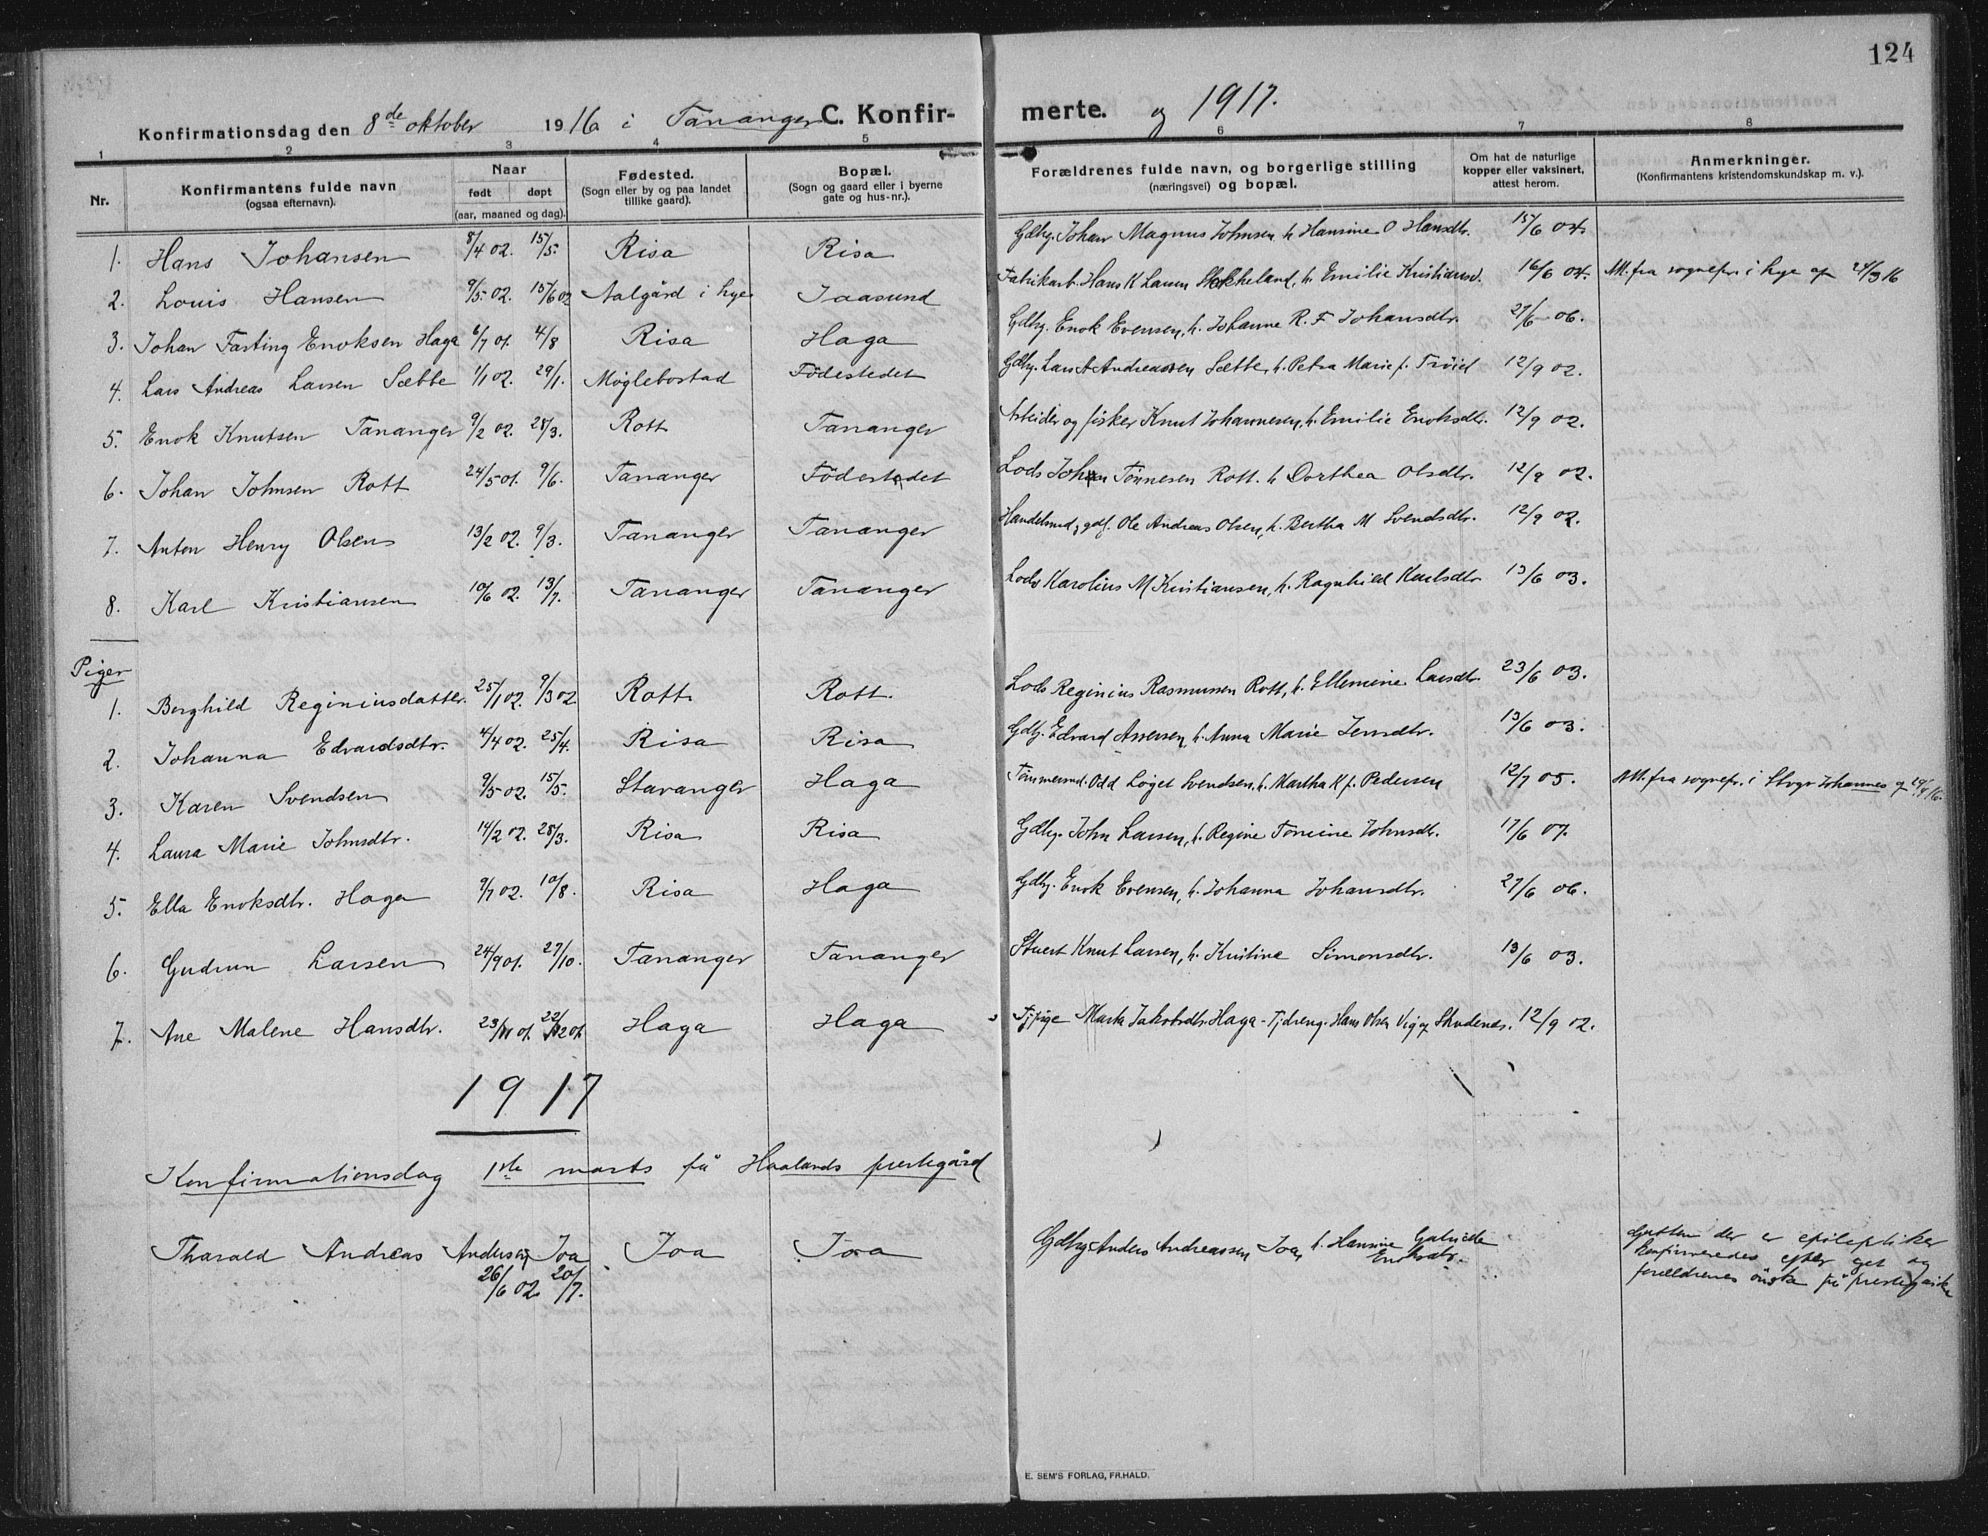 124
Konfirmationsdag den 8de oktober 1916 i Tananger C. Konfir- merte. og 1917.
1 2 3 4 5 6 7 8
Nr. Konfirmantens fulde navn (ogsaa efternavn). Naar født døpt (aar, maaned og dag). Fødested. (Sogn eller by og paa landet tillike gaard). Bopæl. (Sogn og gaard eller i byerne gate og hus-nr.). Forældrenes fulde navn, og borgerlige stilling (næringsvei) og bopæl. Om hat de naturlige kopper eller vaksinert, attest herom. Anmerkninger. (Konfirmantens kristendomskundskap m. v.).
1. Hans Johansen 8/4 02. 15/5. Risa Risa Gdbg. Johan Magnus Johnsen, h. Hansine O Hansdtr. 15/6 04.
2. Louis Hansen 9/5 02. 15/6 02 Aalgård i Gjes Jaasund Fabrikarb. Hans K Larsen Stokkeland, h. Emilie Kristiansd. 16/6 04. Att. fra sognepr. i 24/3 16
3. Johan Fasting Enoksen Haga 6/7 01. 4/8 Risa Haga Gdbg. Enok Evensen, h. Johanne R. F Johansdtr. 27/6 06.
4. Lars Andreas Larsen Sæbbe 1/1 02. 29/1. Møglebostad Födestedet Gdbg. Lars A Andreassen Sætte, h. Petra Marie f. Tröid 12/9 02.
5. Enok Knutsen Tananger 9/2 02. 28/3. Rott Tananger Arbeider og fisker Knut Johannesen, h. Emilie Enoksdtr. 12/9 02.
6. Johan Johnsen Rott 24/5 01. 9/6. Tananger Födestedet Lods John Tönnesen Rott. h Dorthea Olsdtr. 12/9 02.
7. Anton Henry Olsen 13/2 02. 9/3. Tananger Tananger Handelsmd, gdf. Ole Andreas Olsen, h. Bertha M Svendsdtr. 12/9 02.
8. Karl Kristiansen 10/6 02. 13/7. Tananger Tananger Lods Karolius M Kristiansen, h. Ragnhild Karlsdtr 13/6 03.
Piger
1. Berghild Reginiusdatter. 25/1 02. 9/3 02 Rott Rott. Lods Reginius Rasmussen Rott, h. Ellemine Larsdtr. 23/6 03.
2. Johanna Edvardsdtr. 4/4 02. 25/4. Risa Risa Gdbg. Edvard Assersen, h. Anna Marie Jensdtr. 13/6 03.
3. Karen Svendsen 9/5 02. 15/5. Stavanger Haga Tömmermd. Odd Löget Svendsen, h. Martha K f. Pedersen 12/7 05. Att. fra sognepr. i Stvgr Johannes af 29/4 16.
4. Laura Marie Johnsdtr. 14/2 02. 28/3. Risa Risa Gdbg. John Larsen, h. Regine Tomine Johnsdtr. 17/6 07.
5. Ella Enoksdtr. Haga 9/7 02. 10/8. Risa Haga Gdbg. Enok Evensen, h. Johanna Johansdtr. 27/6 06.
6. Gudrun Larsen 24/9 01. 27/10. Tananger Tananger Stuert Knut Larsen, h. Kristine Simonsdtr. 13/6 03.
7. Ane Malene Hansdtr. 23/11 01. 22/12 01 Haga Haga Tj.pige Marta Jakobsdtr. Haga - Tj.dreng. Hans Olsen Vig af Skudenes. 12/9 02.
1917
Konfirmationsdag 1ste marts på Haalands prestegård
Tharald Andreas Andersen Joa Joa Joa Gdbg Anders Andreassen Joa, h. Hansine Gabrielle Enoksdtr.
26/6 02. 20/7.
Gutten der er epileptiker
konfirmeredes efter eget og
forældrenes önske på prestegård
E. SEM'S FORLAG, FR.HALD.